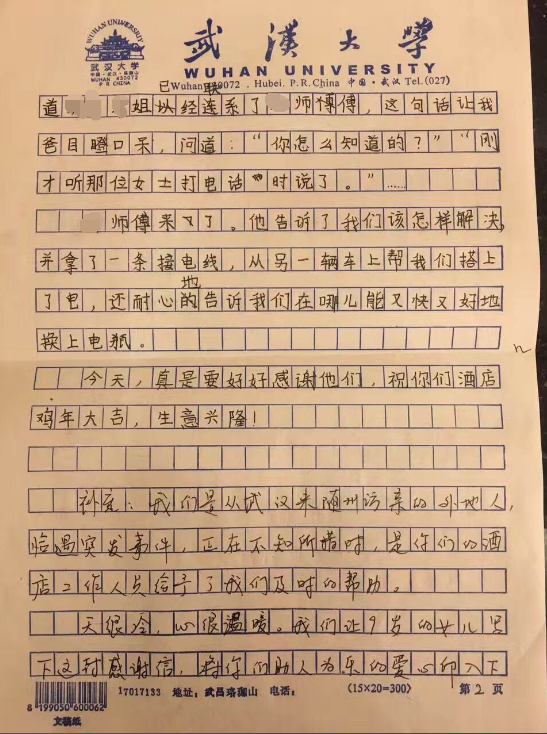 武漢大學
WUHAN UNIVERSITY
武汉大学
WUHAN 430072
P.R CHINA
Wuhan 430072, Hubei, P.R.China 中国·武汉 Tel.(027)
已 联
道 姐以经连系了 师傅，这句话让我
爸目瞪口呆，问道：“你怎么知道的？”“刚
才听那位女士打电话时说了。”……
师傅来了。他告诉了我们该怎样解决，
并拿了一条接电线，从另一辆车上帮我们搭上
地
了电，还耐心的告诉我们在哪儿能又快又好地
换上电瓶。
今天，真是要好好感谢他们，祝你们酒店
鸡年大吉，生意兴隆！
补充：我们是从武汉来随州访亲的外地人，
恰遇突发事件，正在不知所措时，是你们的酒
店工作人员给予了我们及时的帮助。
天很冷，心很温暖。我们让9岁的女儿写
下这封感谢信，将你们助人为乐的爱心印入下
17017133 地址：武昌珞珈山 电话： (15×20=300) 第2页
8 199050 600062
文稿纸